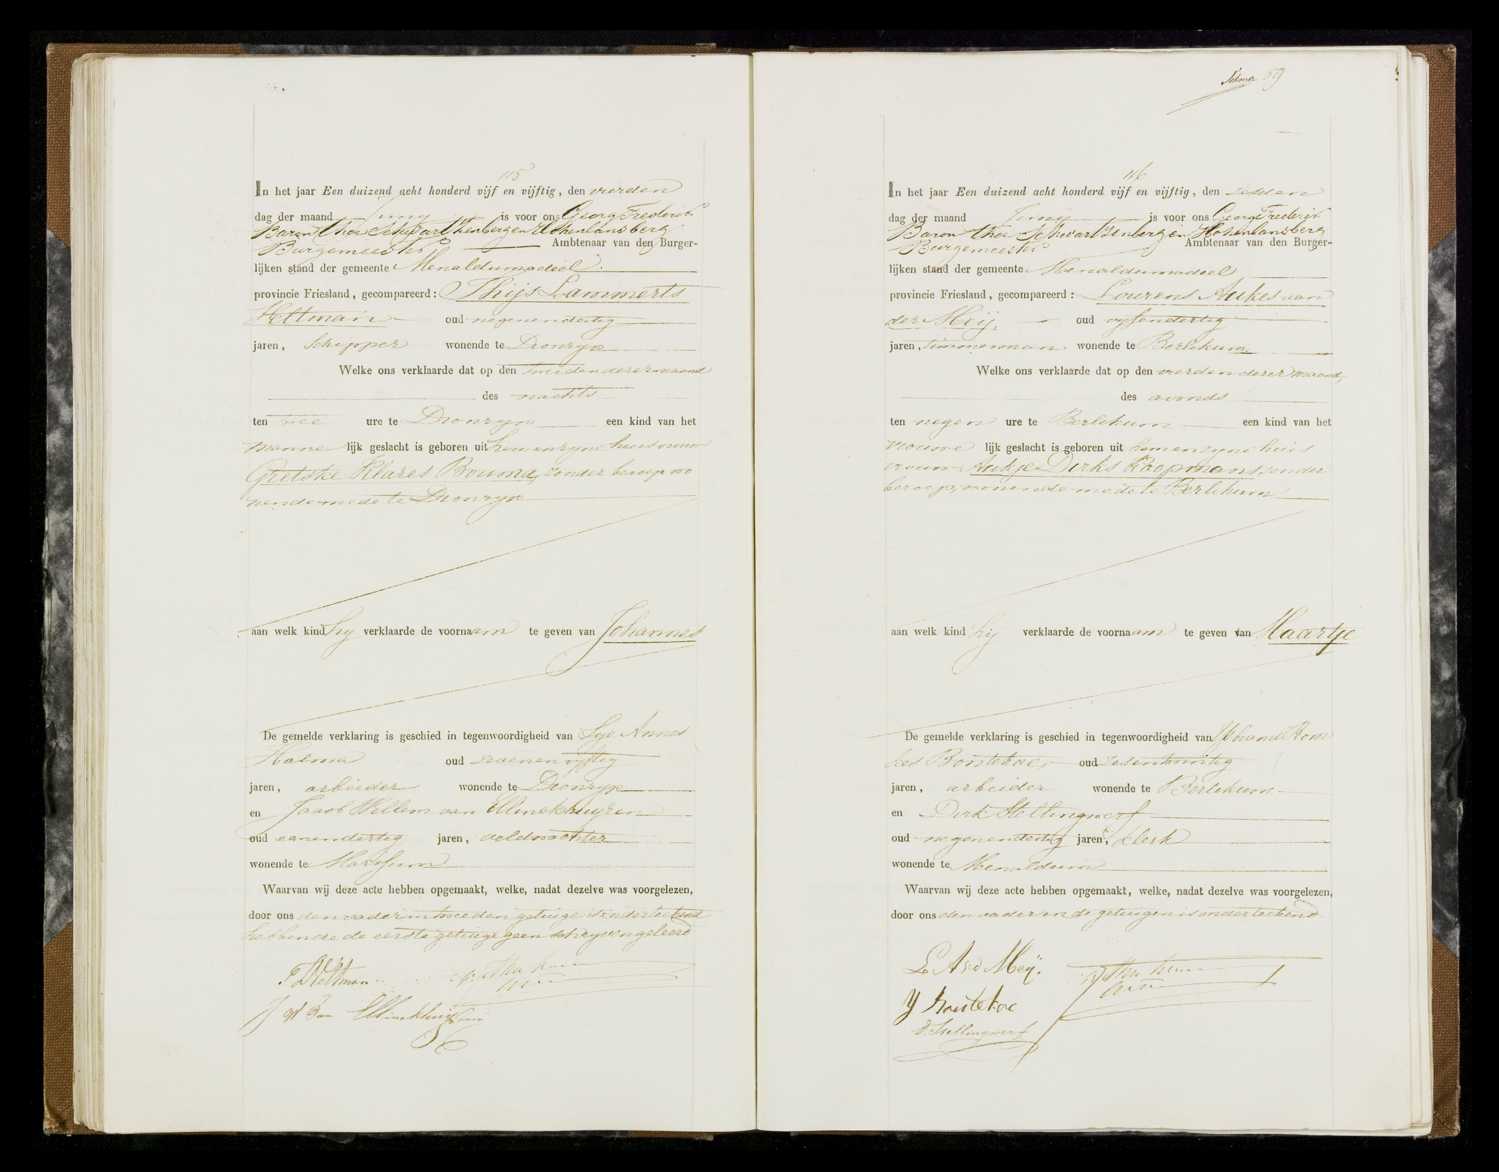 115
In het jaar Een duizend acht honderd vijf en vijftig, den vierden
dag der maand Juny is voor ons Georg Frederik
Baron thoe Schwartzenberg en Hohenlansberg
Burgemeester Ambtenaar van den Burger-
lijken stand der gemeente Menaldumadeel
provincie Friesland, gecompareerd: Thijs Lammerts
oud negenendertig
jaren, Schipper wonende te Dronryp
Welke ons verklaarde dat op den tweeden dezer maand
des nachts
ten twee ure te Dronryp een kind van het
manne lijk geslacht is geboren uit hem en zyne huisvrouw
Grietske Klazes Bouma, zonder beroep wo
nende mede te Dronryp
aan welk kind hy verklaarde de voornaam te geven van Johannes
De gemelde verklaring is geschied in tegenwoordigheid van Sye Annes
Halma oud zevenenvyftig
jaren, arbeider wonende te Dronryp
en Jacob Willem van Ellinckhuyzen
oud eenendertig jaren, veldwachter
wonende te Marssum
Waarvan wij deze acte hebben opgemaakt, welke, nadat dezelve was voorgelezen,
door ons den vader en tweeden getuige is onderteekend
hebbende de eerste getuige geen schryven geleerd
116
In het jaar Een duizend acht honderd vijf en vijftig, den zesden
dag der maand Juny is voor ons Georg Frederik
Baron thoe Schwartzenberg en Hohenlansberg
Burgemeester Ambtenaar van den Burger-
lijken stand der gemeente Menaldumadeel
provincie Friesland, gecompareerd: Lourens Aukes van
der Meij, oud vyfendertig
jaren, timmerman wonende te Berlikum
Welke ons verklaarde dat op den vierden dezer maand,
des avonds
ten negen ure te Berlikum een kind van het
vrouwe lijk geslacht is geboren uit hem en zyne huis
vrouw Aukje Dirks Koopmans, zonder
beroep, wonende mede te Berlikum
aan welk kind hij verklaarde de voornaam te geven van Maartje
De gemelde verklaring is geschied in tegenwoordigheid van
Bontekoe, oud zesentwintig
jaren, arbeider wonende te Berlikum
en Dirk Stellingwerf
oud negenendertig jaren, klerk
wonende te Menaldum
Waarvan wij deze acte hebben opgemaakt, welke, nadat dezelve was voorgelezen,
door ons den vader en de getuigen is onderteekend
L. A. v. d. Meij.
Y Bontekoe
D. Stellingwerf